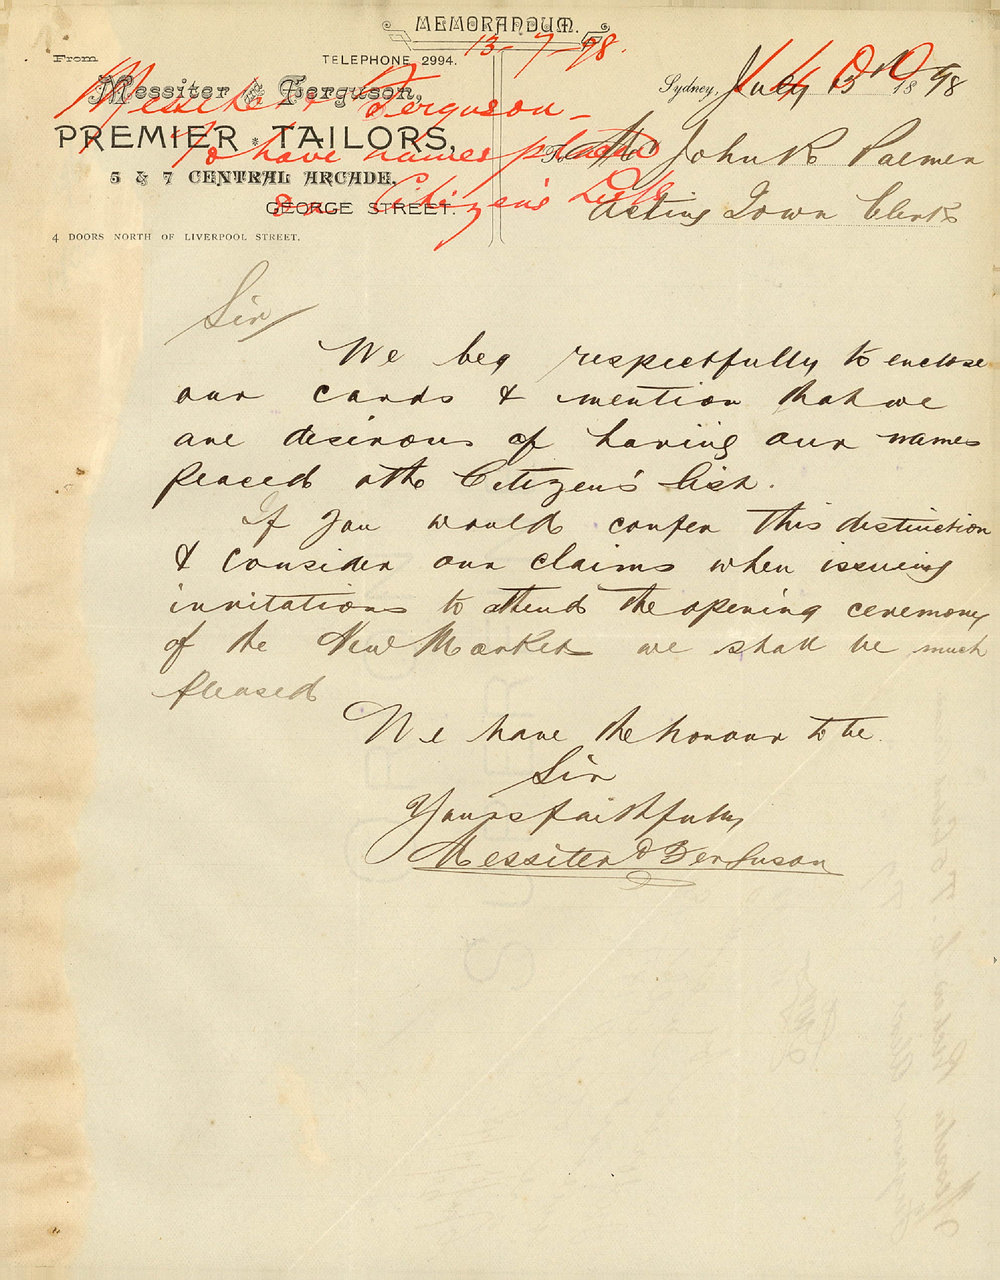 MEMORANDUM.
13-7-98.
From
TELEPHONE 2994.
Messiter & Ferguson,
PREMIER * TAILORS,
5 & 7 CENTRAL ARCADE,
GEORGE STREET.
4 DOORS NORTH OF LIVERPOOL STREET.
Messiter & Ferguson -
To have names placed
on Citizen's List
Sydney, July 13th 1898
To Mr John R Palmer
Acting Town Clerk
Sir/
We beg respectfully to enclose
our cards & mention that we
are desirous of having our names
placed o the Citizen's list.
If you would confer this distinction
& consider our claims when issueing
invitations to attend the opening ceremony
of the New Market we shall be much
pleased
We have the honour to be
Sir
Yours faithfully
Messiter & Ferguson